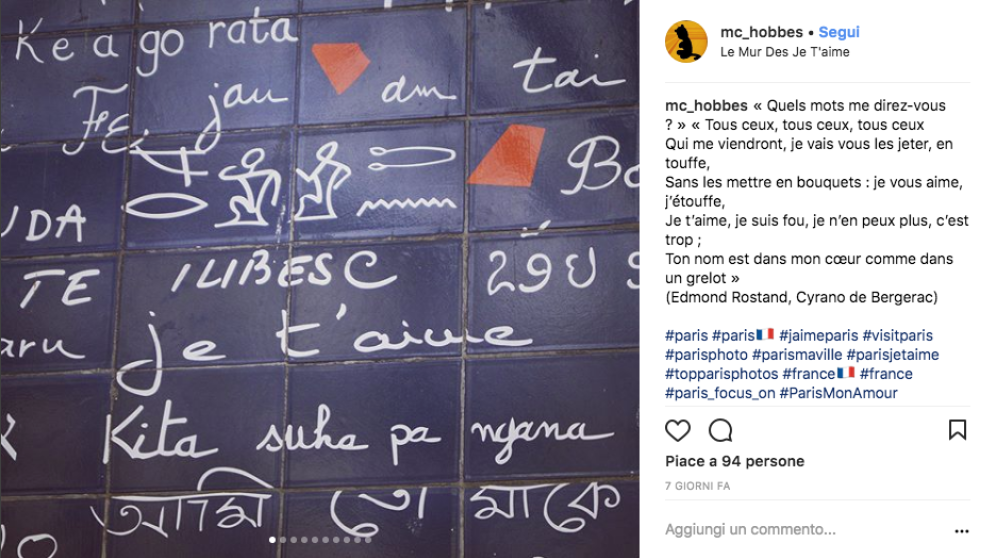 Ke a go rata
tai
je t'aime
Kita suka pa ngana
আমি তো মাকে
mc_hobbes • Segui
Le Mur Des Je T'aime
mc_hobbes « Quels mots me direz-vous
? » « Tous ceux, tous ceux, tous ceux
Qui me viendront, je vais vous les jeter, en
touffe,
Sans les mettre en bouquets : je vous aime,
j'étouffe,
Je t'aime, je suis fou, je n'en peux plus, c'est
trop ;
Ton nom est dans mon cœur comme dans
un grelot »
(Edmond Rostand, Cyrano de Bergerac)
#paris #paris🇫🇷 #jaimeparis #visitparis
#parisphoto #parismaville #parisjetaime
#topparisphotos #france🇫🇷 #france
#paris_focus_on #ParisMonAmour
Piace a 94 persone
7 GIORNI FA
Aggiungi un commento...